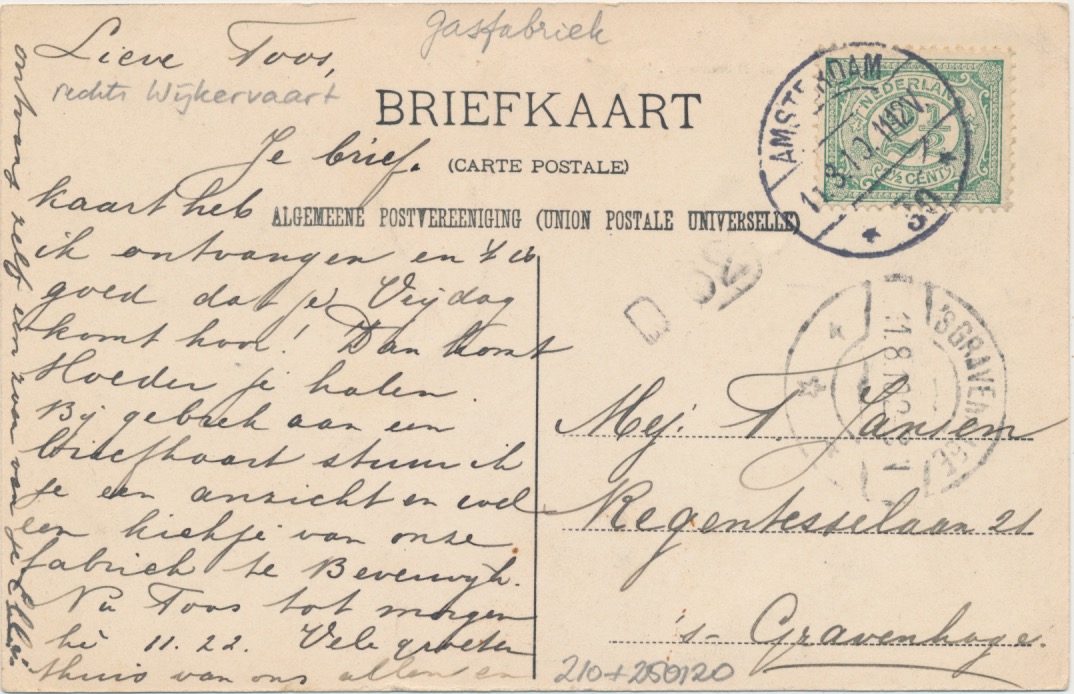 gasfabriek
Lieve Toos,
rechts Wijkervaart
BRIEFKAART
(CARTE POSTALE)
ALGEMEENE POSTVEREENIGING (UNION POSTALE UNIVERSELLE)
Je brief.
kaart heb
ik ontvangen en 't is
goed dat je Vrijdag
komt hoor! Dan komt
Moeder je halen.
Bij gebrek aan een
briefkaart stuur ik
je een anzicht en wel
een kiekje van onze
fabriek te Beverwijk.
Nu Toos tot morgen
hè 11.22. Vele groeten
thuis van ons allen en
ontvang zelf een zoen van je
Mej: T. Jansen
Regentesselaan 21
's-Gravenhage.
210+250120
NEDERLAND
2½
2½ CENT
AMSTERDAM
11.8.10. 11-12V.
30
'S GRAVENHAGE
D 52